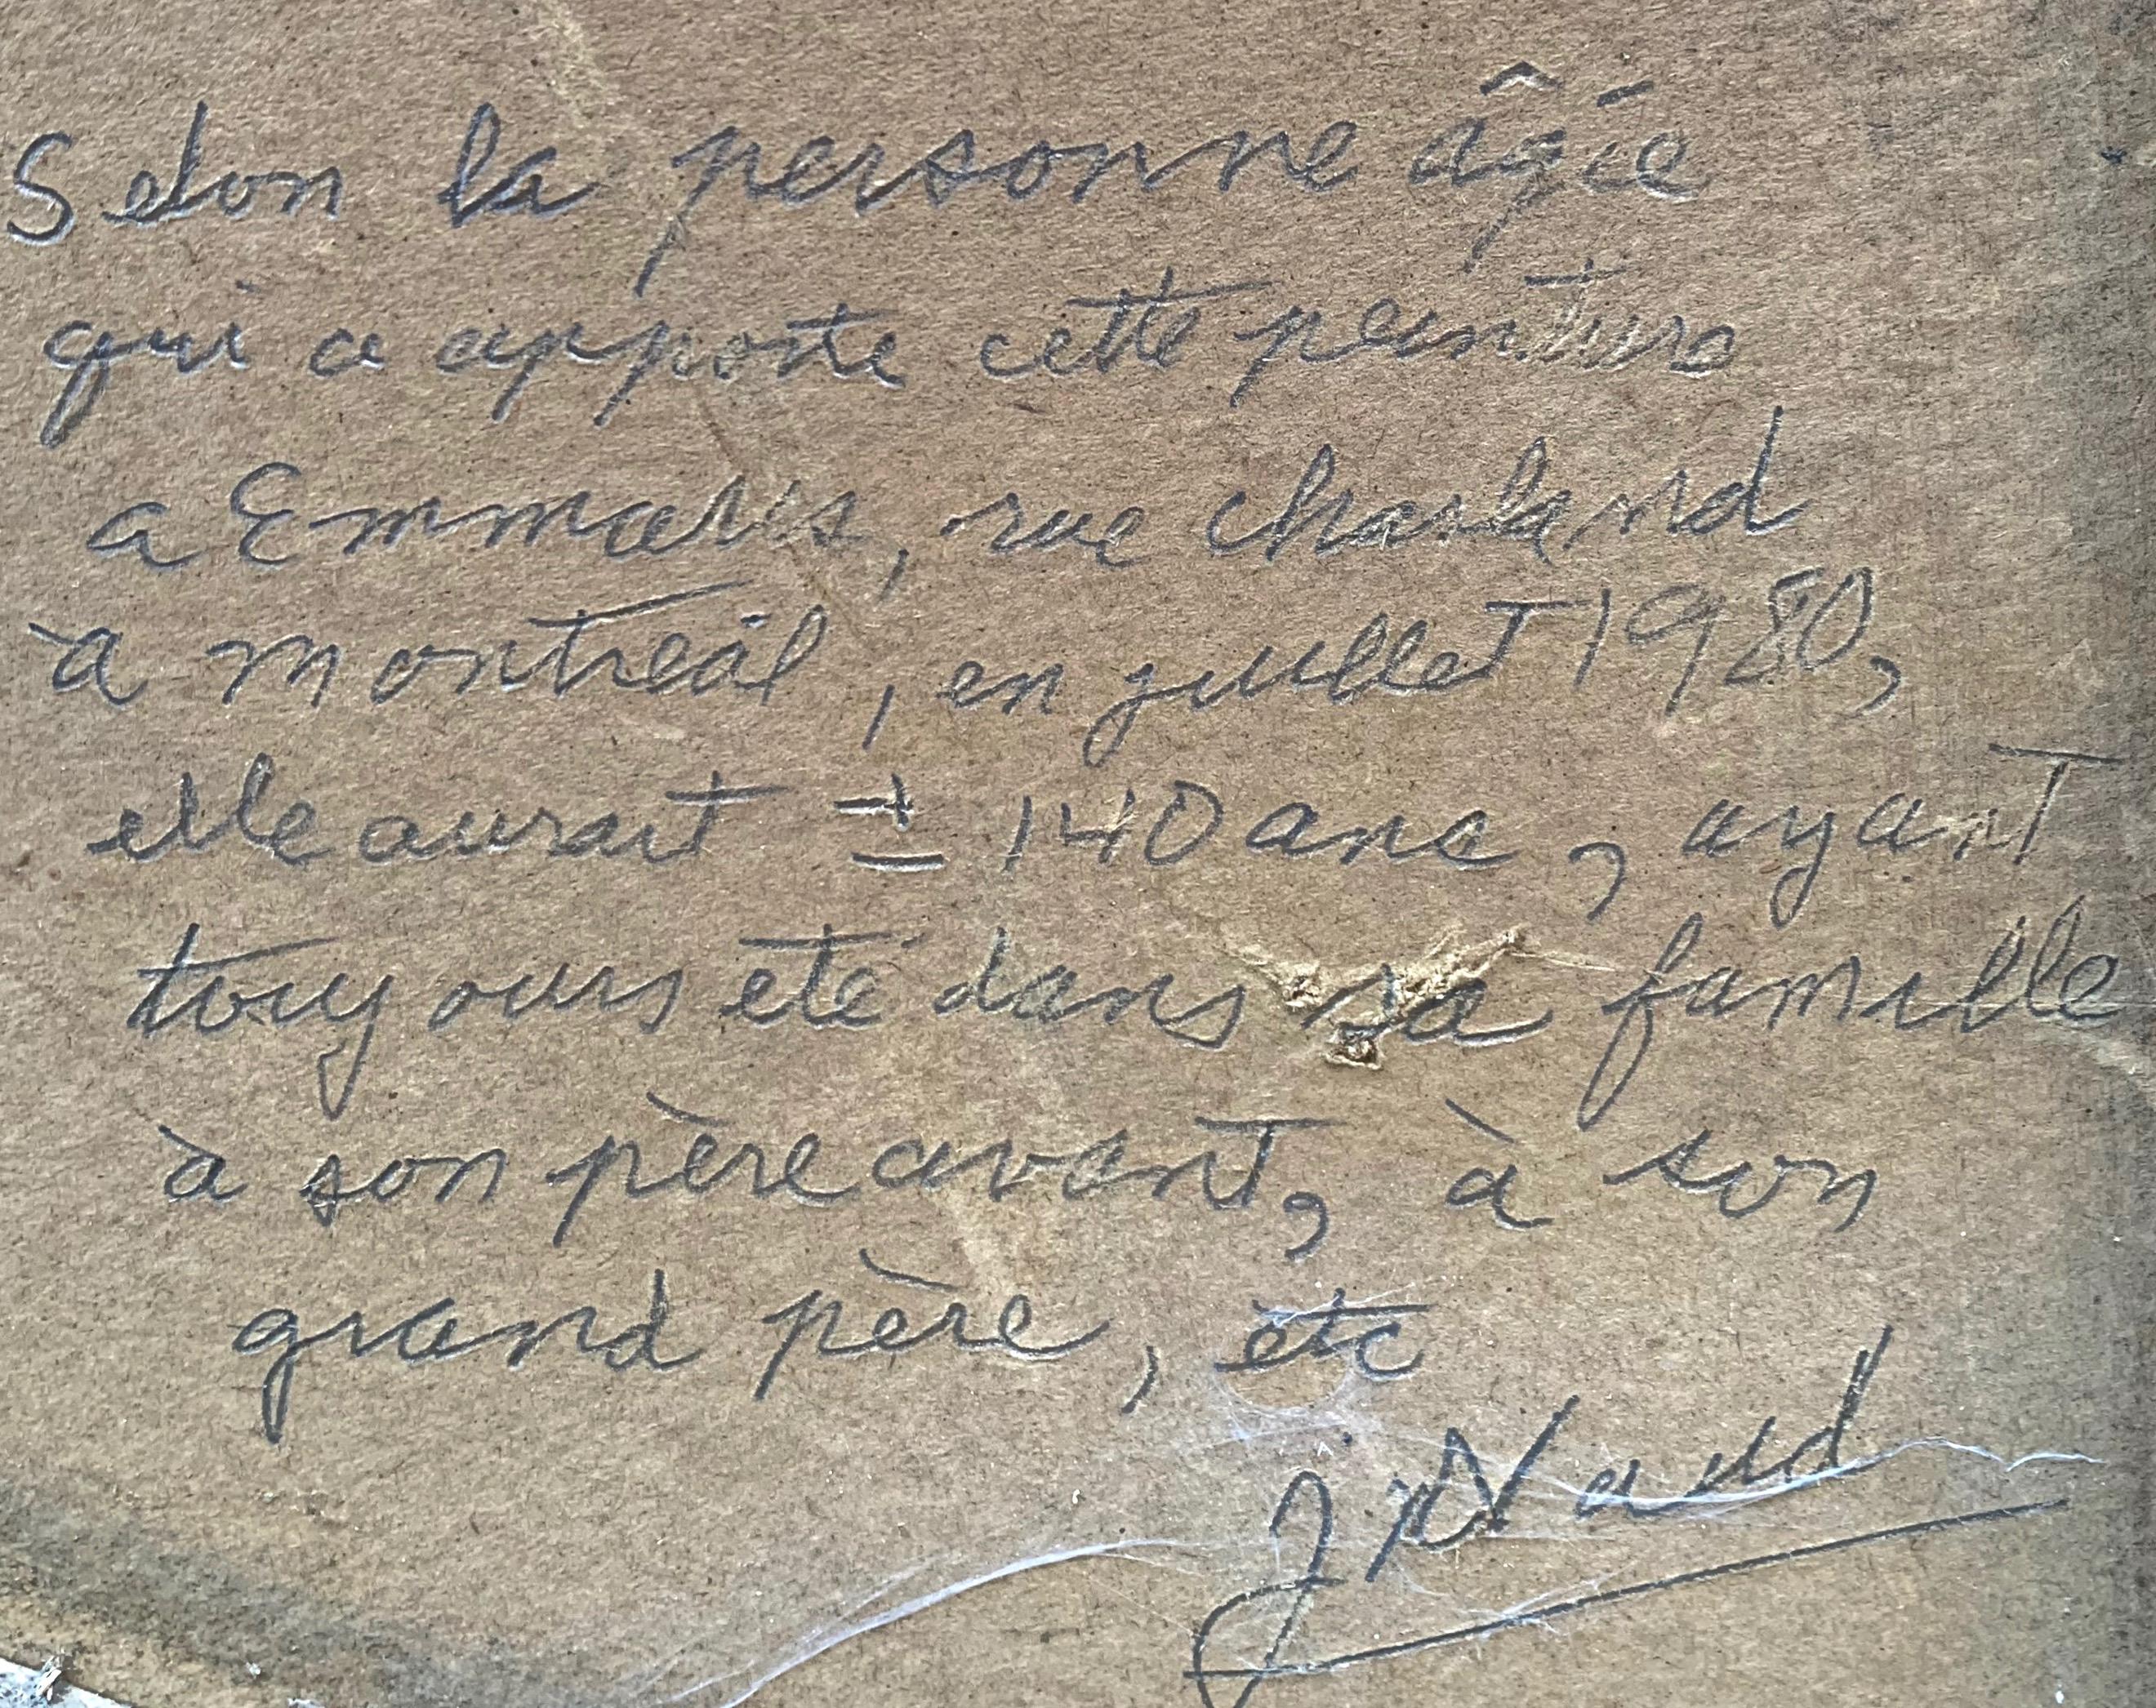 Selon la personne âgée
qui a apporté cette peinture
a Emmaus, rue charland
à montréal, en juillet 1980,
elle aurait ± 140 ans, ayant
toujours été dans sa famille
à son père avant, à son
grand père, etc
J Naud